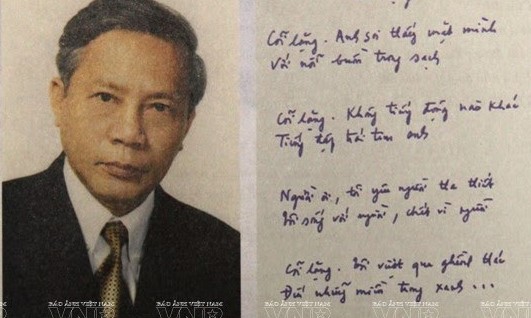 Cõi lặng. Anh soi thấy mặt mình
Với nỗi buồn trong sạch
Cõi lặng. Không tiếng động nào khác
Tiếng đập trái tim anh
Người ơi, tôi yêu người tha thiết
Tôi sống với người, chết vì người
Cõi lặng. Tôi vượt qua ghềnh thác
Đến những miền trong xanh ...
BÁO ẢNH VIỆT NAM
BÁO ẢNH VIỆT NAM
BÁO ẢNH VIỆT NAM